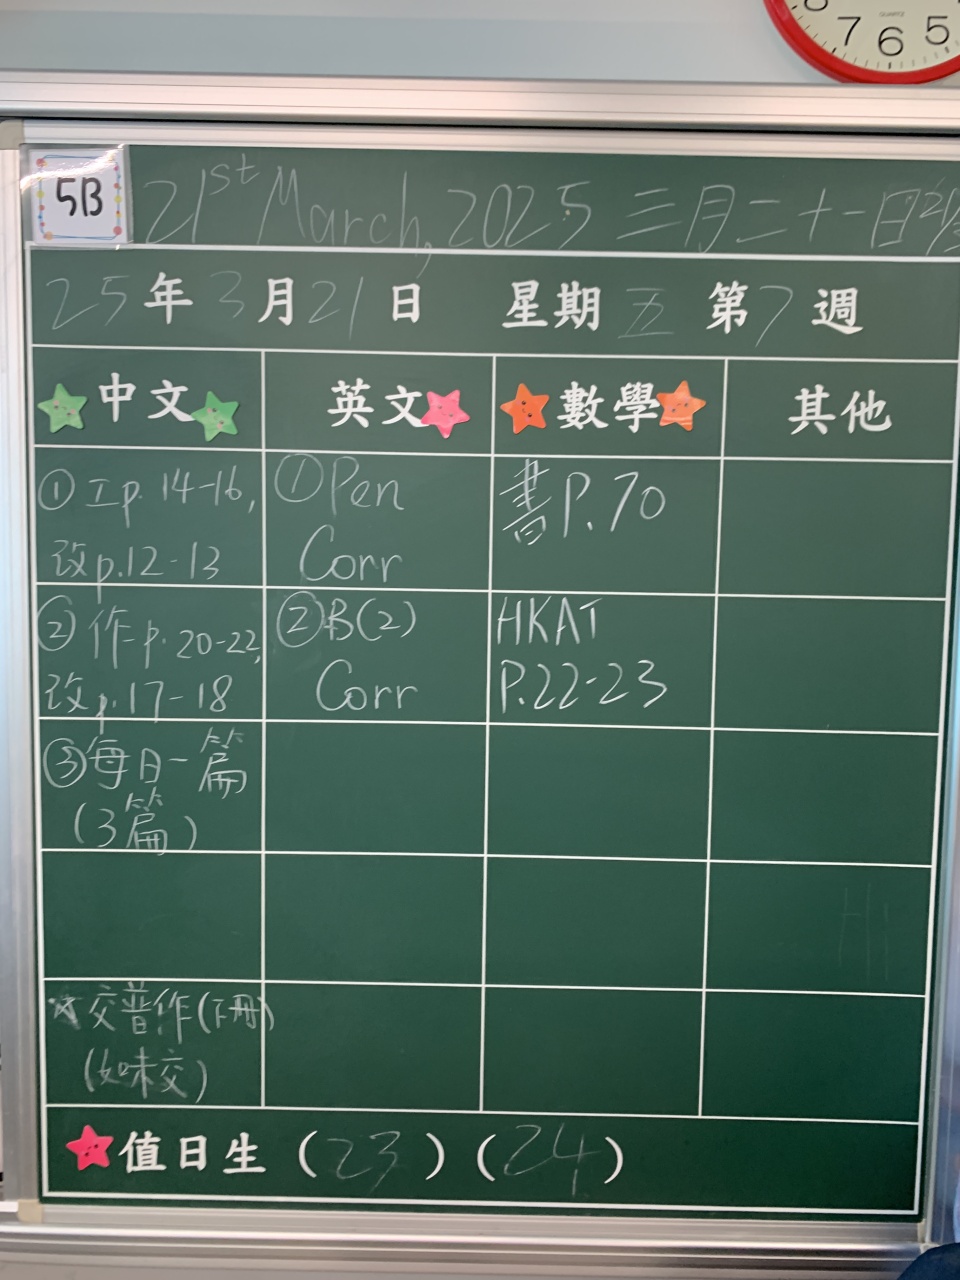 QUARTZ
8 7 6 5
5B
21st March, 2025 三月二十一日
25年3月21日 星期五 第7週
中文 英文 數學 其他
①工p.14-16,
改p.12-13
①Pen
Corr
書P.70
②作p.20-22,
改p.17-18
②B(2)
Corr
HKAT
P.22-23
③每日一篇
(3篇)
交普作(下冊)
(如味交)
值日生(23)(24)